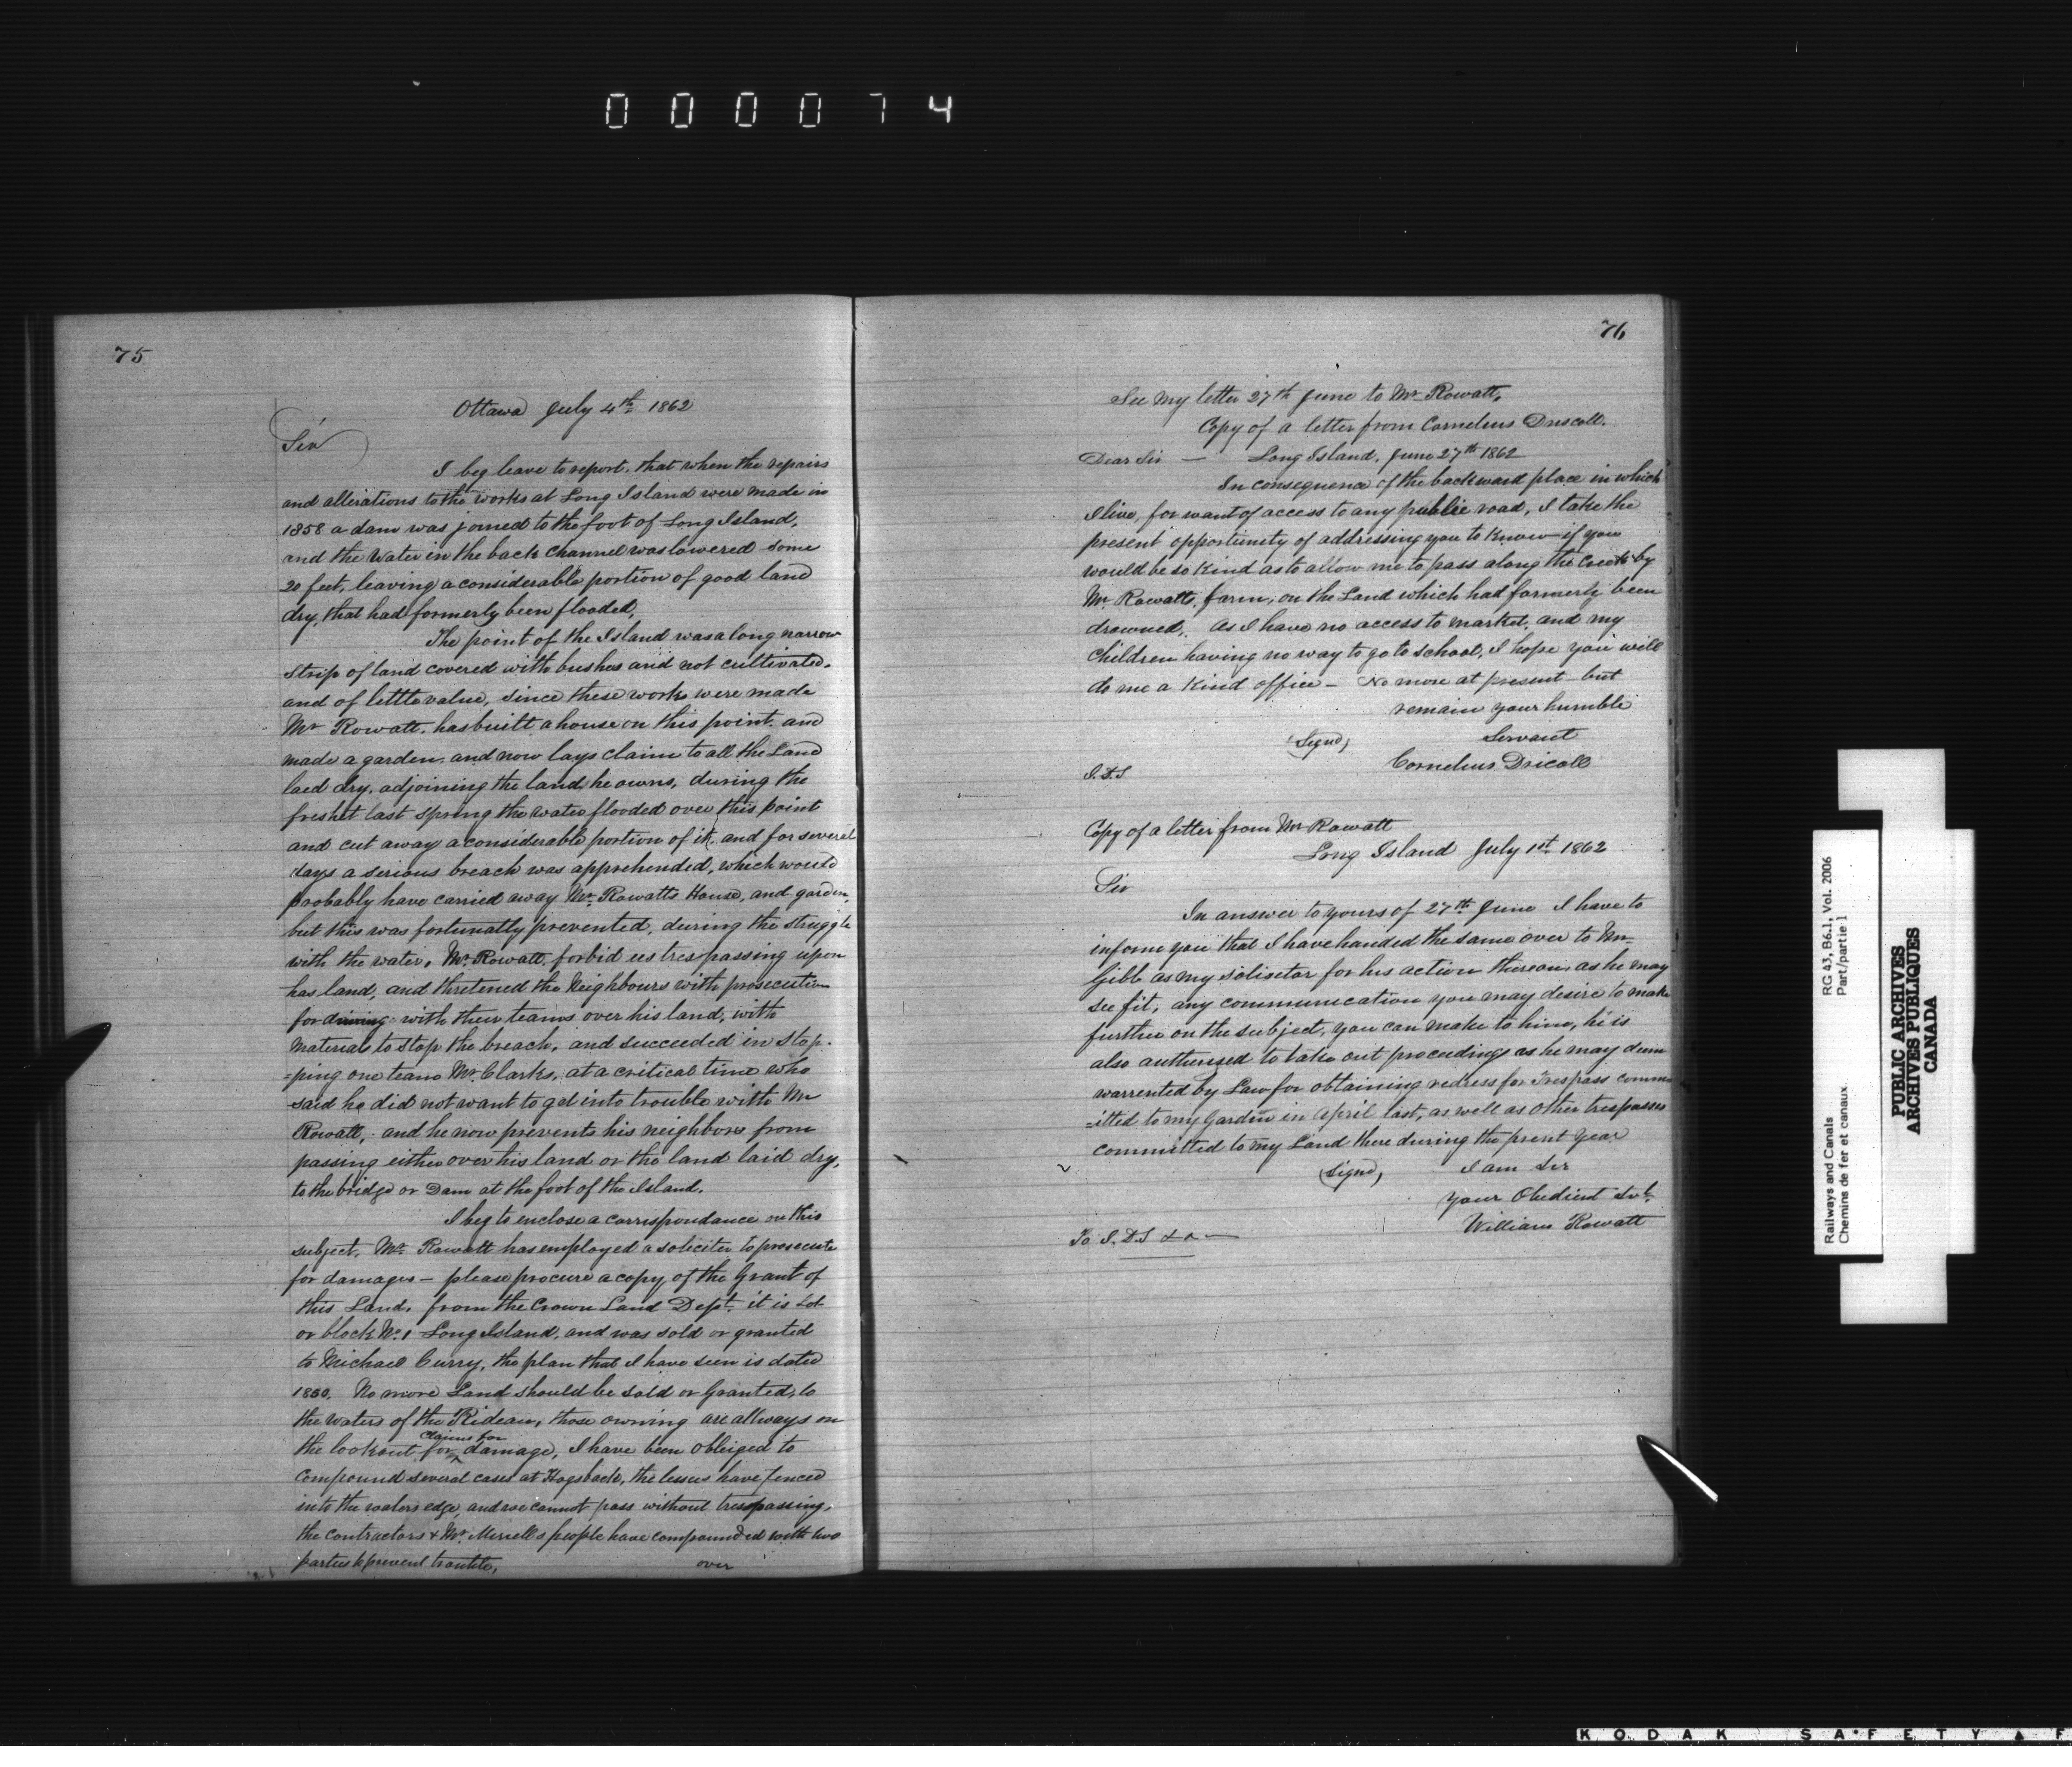 000074
75
Ottawa July 4th 1862
Sir
I beg leave to report, that when the repairs
and alterations to the works at Long Island were made in
1858 a dam was joined to the foot of Long Island,
and the water in the back channel was lowered some
20 feet, leaving a considerable portion of good land
dry, that had formerly been flooded,
The point of the Island was a long narrow
strip of land covered with bushes and not cultivated,
and of little value, since these works were made
Mr Rowatt, has built a house on this point, and
made a garden, and now lays claim to all the Land
laed dry, adjoining the land he owns, during the
freshet last spring the water flooded over this point
and cut away a considerable portion of it, and for several
days a serious breach was apprehended, which would
probably have carried away Mr Rowatts House, and garden,
but this was fortunatly prevented, during the struggle
with the water, Mr Rowatt, forbid us trespassing upon
his land, and thretened the Neighbours with prosecution
for driving with their teams over his land, with
material to stop the breach, and succeeded in stop-
=ping one team Mr Clarks, at a critical time who
said he did not want to get into trouble with Mr
Rowatt, and he now prevents his neighbors from
passing either over his land or the land laid dry,
to the bridge or Dam at the foot of the Island.
I beg to enclose a correspondance on this
subject. Mr Rowatt has employed a soliciter to prosecute
for damages — please procure a copy of the Grant of
this Land, from the Crown Land Dept. it is Lot
or block No 1 Long Island, and was sold or granted
to Michael Curry, the plan that I have seen is dated
1850. No more Land should be sold or Granted, to
the waters of the Rideau, those owning are allways on
claims for
the lookout for damage, I have been obliged to
compound several cases at Hogsback, the lesses have fenced
into the waters edge, and we cannot pass without tresspassing,
the contractors & Mr Merrells people have compounded with two
parties to prevent trouble,
over
76
See my letter 27th June to Mr Rowatt,
Copy of a letter from Cornelius Driscoll.
Dear Sir — Long Island, June 27th 1862
In consequence of the backward place in which
I live, for want of access to any public road, I take the
present opportunity of addressing you to know if you
would be so kind as to allow me to pass along the Creek by
Mr Rowatts, farm, on the Land which had formerly been
drowned, As I have no access to market, and my
Children having no way to go to school, I hope you will
do me a kind office — No more at present — but
remain your humble
(Signd) Servant
Cornelius Dricoll
S.D.S
Copy of a letter from Mr Rawatt
Long Island July 1st 1862
Sir
In answer to yours of 27th June I have to
inform you that I have handed the same over to Mr
Gibb as my solisetor for his action thereon as he may
see fit, any communication you may desire to make
further on the subject, you can make to him, he is
also authorised to take out proceedings as he may deem
warrented by Law for obtaining redress for Trespass comm-
=itted to my Garden in April last, as well as other trespasses
committed to my Land there during the prent year
(Signd) I am Sir
your Obedient Svt.
William Rowatt
To S.D.S &c —
Railways and Canals
Chemins de fer et canaux
RG 43, B6.1, Vol. 2006
Part/partie 1
PUBLIC ARCHIVES
ARCHIVES PUBLIQUES
CANADA
KODAK SAFETY F